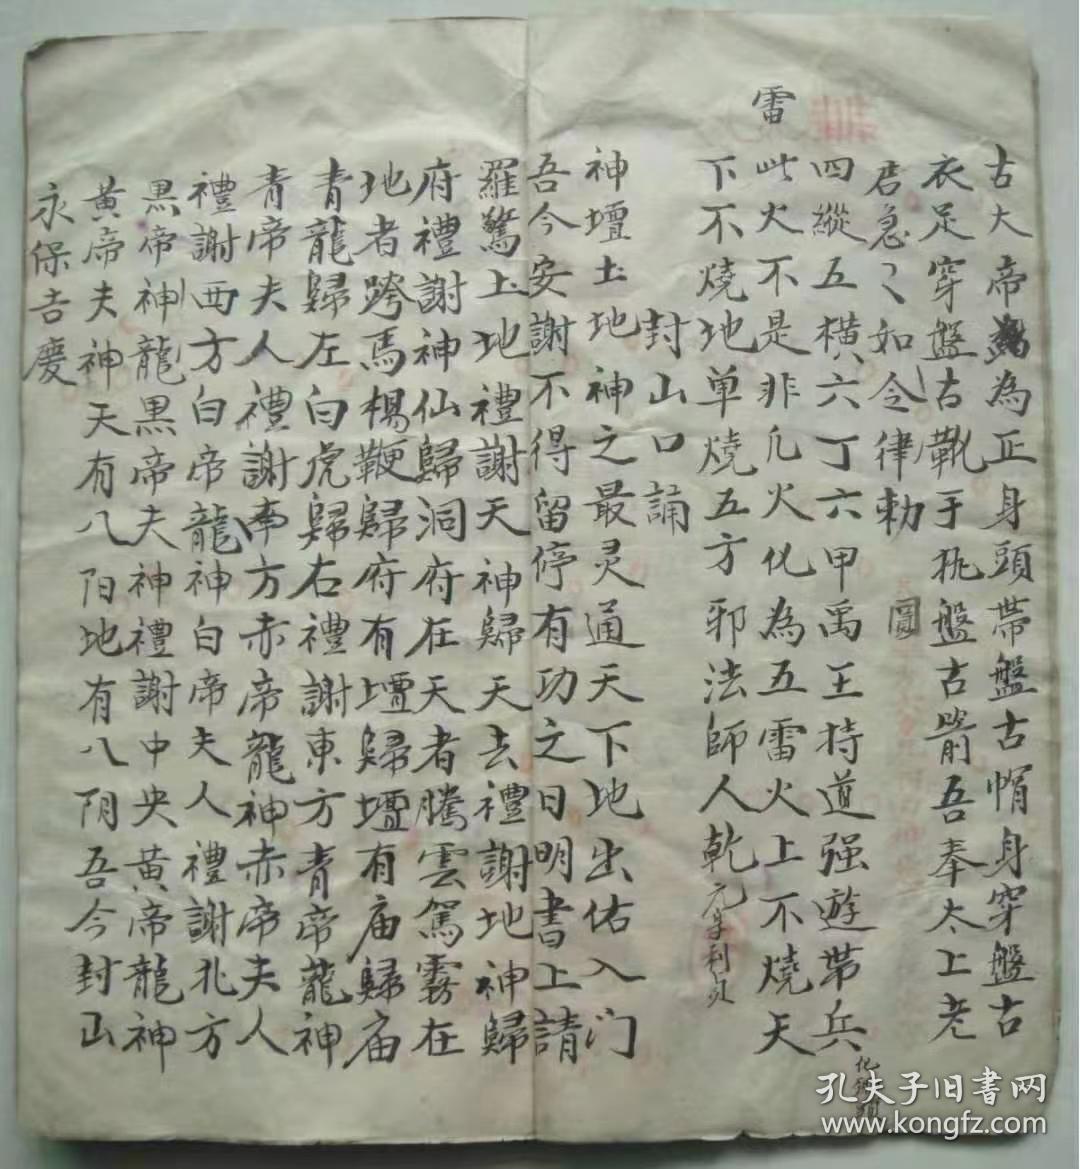 古大帝為正身頭帶盤古帽身穿盤古
衣足穿盤古靴于执盤古箭吾奉太上老
君急〻如令律勅
四縱五橫六丁六甲禹王持道强遊帶兵
雷
此火不是非凡火化為五雷火上不燒天
下不燒地单燒五方邪法師人乾元亨利貞
封山口誦
神壇土地神神之最灵通天下地出佑入门
吾今安謝不得留停有功之日明書上請
羅驚土地禮謝天神歸天去禮謝地神歸
府禮謝神仙歸洞府在天者騰雲駕霧在
地者跨馬楊鞭歸府有壇歸壇有庙歸庙
青龍歸左白虎歸右禮謝東方青帝龍神
青帝夫人禮謝南方赤帝龍神赤帝夫人
禮謝西方白帝龍神白帝夫人禮謝北方
黑帝神龍黑帝夫神禮謝中央黃帝龍神
黃帝夫神天有八阳地有八阴吾今封山
永保吉慶
孔夫子旧书网
www.kongfz.com